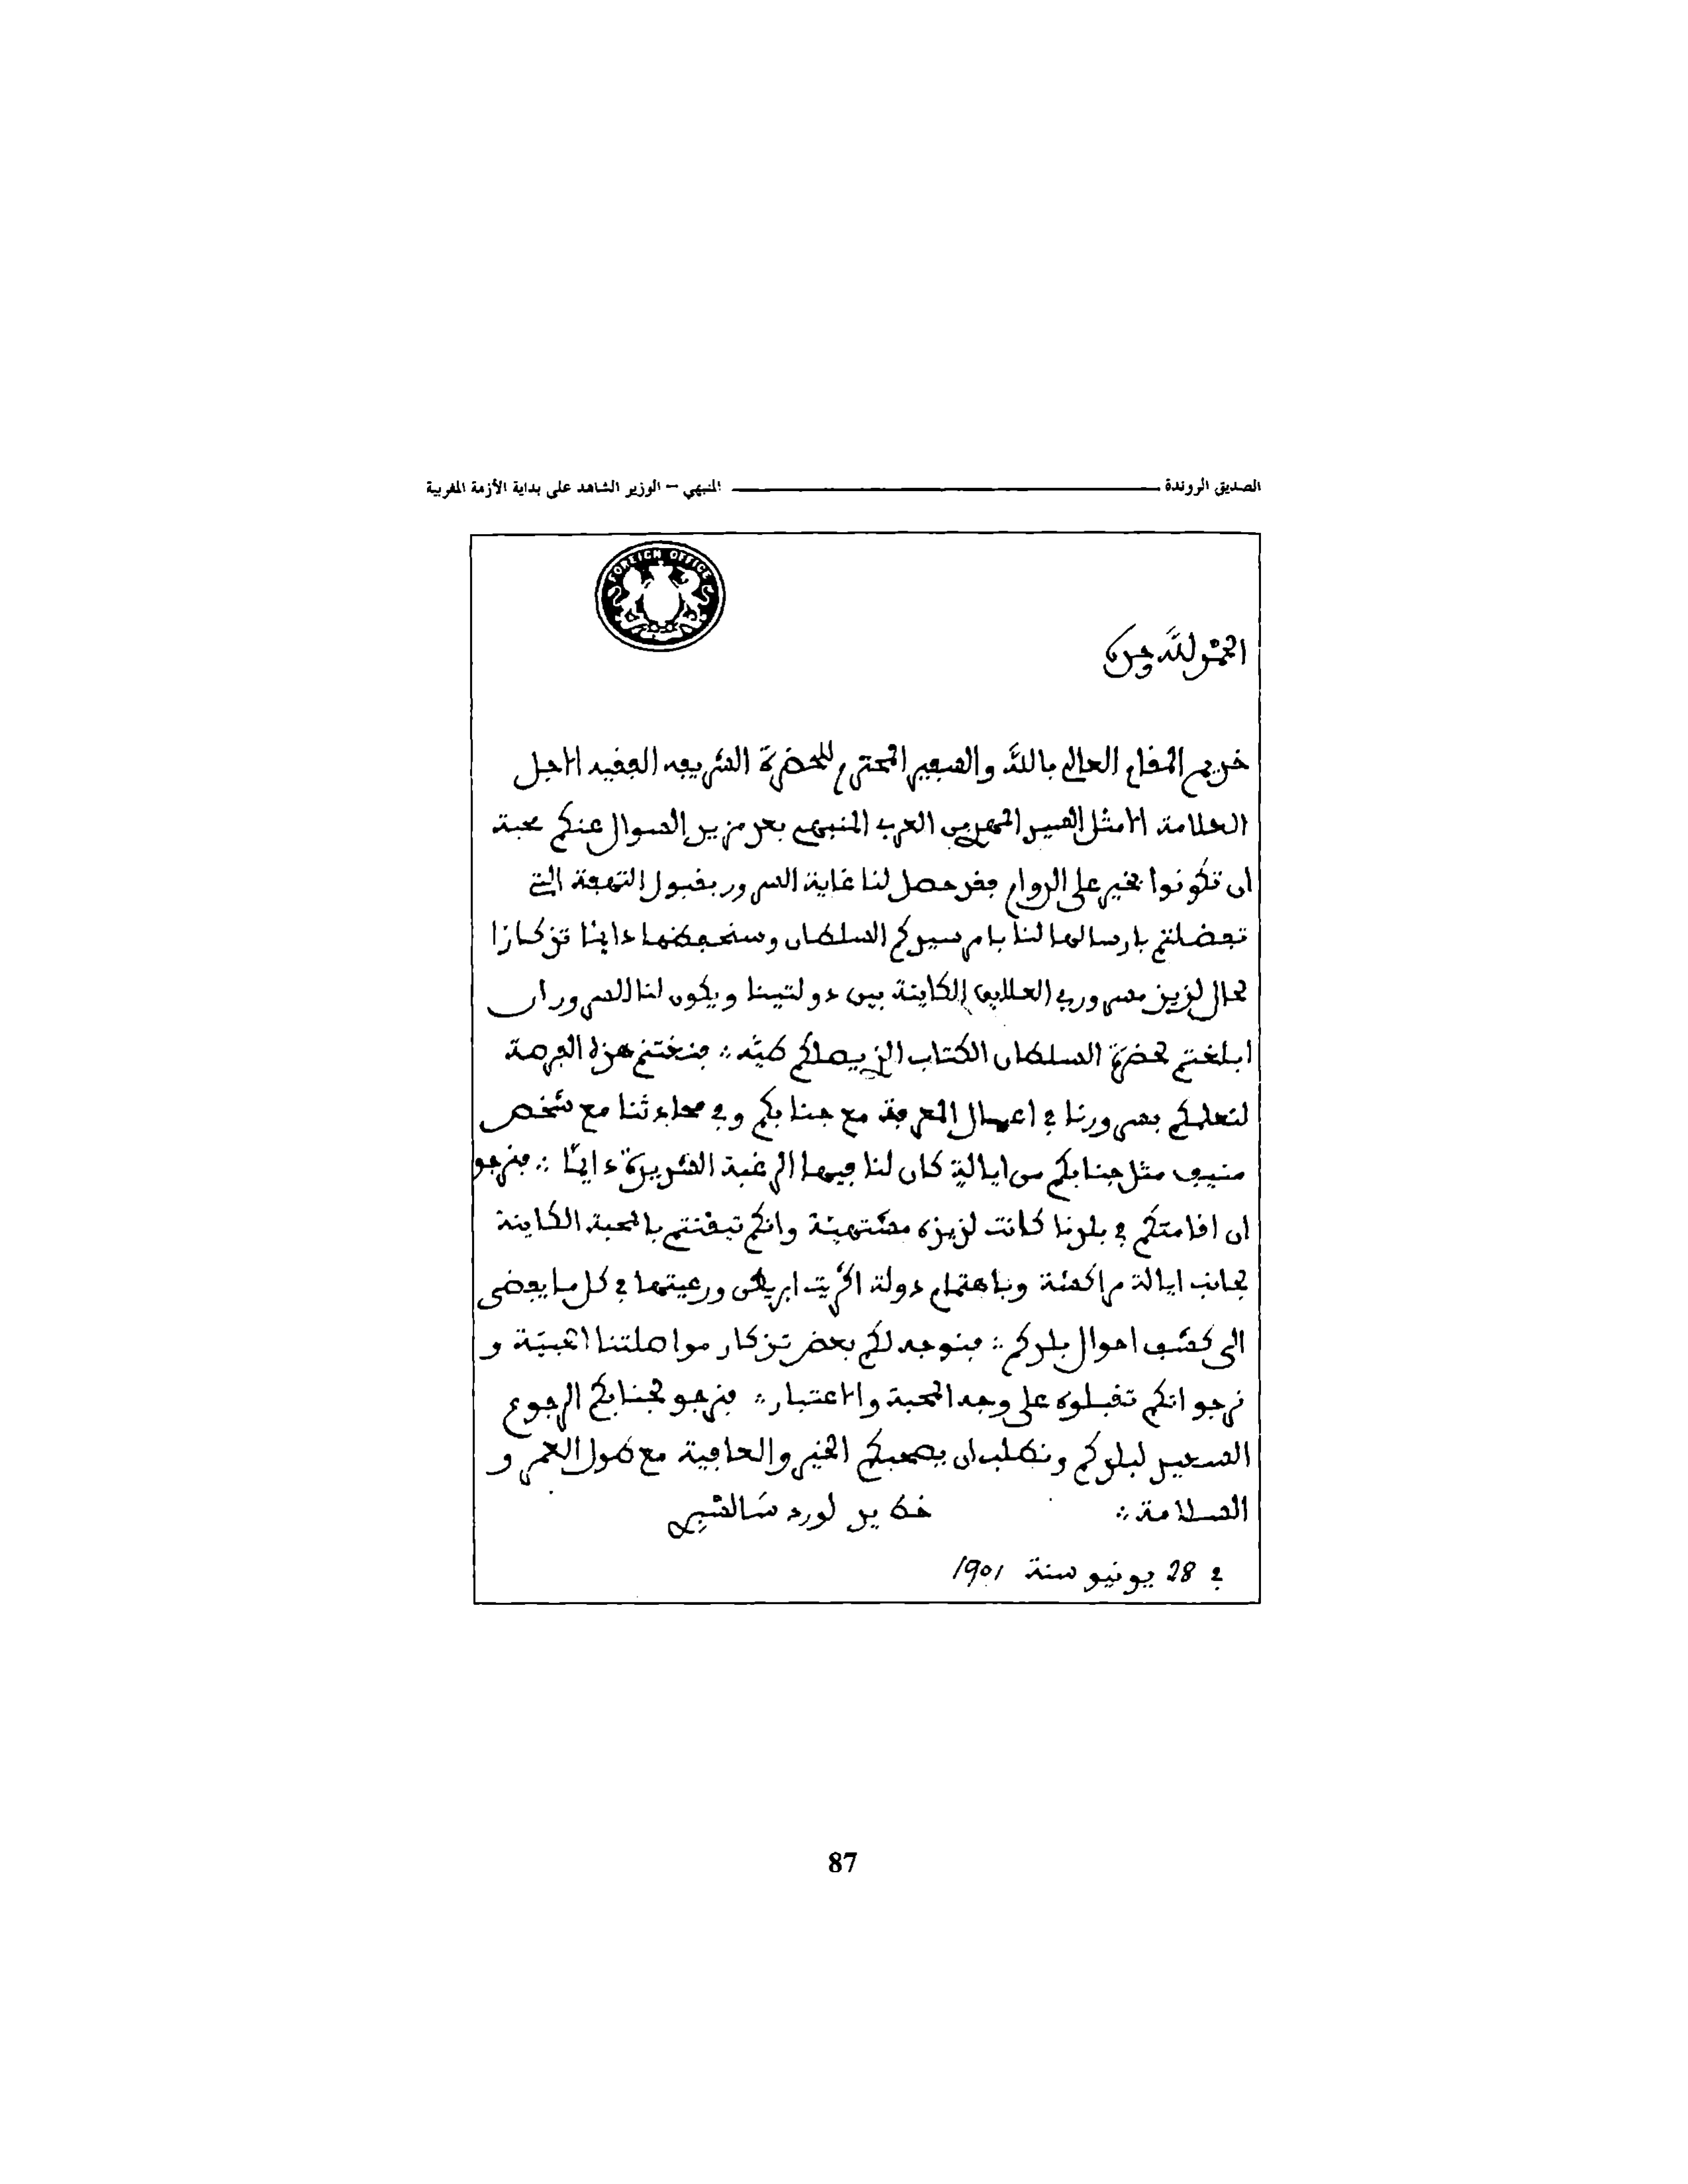 الصديق الروندة
المنبهي – الوزير الشاهد على بداية الأزمة المغربية
FOREIGN OFFICE
الحمد لله وحده
خديم المقام العالي بالله والسفير المحترم للحضرة الشريفه الفقيه الاجل
العلامة الامثل السيد المهدي العربي المنبهي بعد مزيد السوال عنكم محبة
ان تكونوا بخير على الدوام فقد حصل لنا غاية السرور بقبول التحفة التي
تفضلتم بارسالها لنا بامر سيدكم السلطان وسنحفظها دايما تذكارا
لحال لذيذ مسرور في العلايق الكاينة بين دولتينا ويكون لنا السرور ان
ابلغتم لحضرة السلطان الكتاب الذي يصلكم طيه ∴ فنغتنم هذه الفرصة
لنعلمكم بسرورنا في اعمال المعرفة مع جنابكم وفي محادثنا مع شخص
منيف مثل جنابكم من ايالة كان لنا فيها الرغبة الشديدة دايما ∴ فنرجو
ان اقامتكم في بلدنا كانت لذيذه مشتهية وانكم تيقنتم بالمحبة الكاينة
لجانب ايالة مراكشة وباهتمام دولة اكريت ابريطن ورعيتها في كل ما يفضى
الى كشف احوال بلدكم ∴ فنوجه لكم بعض تذكار مواصلتنا الحبية و
نرجو انكم تقبلوه على وجه المحبة والاعتبار ∴ فنرجو لجنابكم الرجوع
السعيد لبلدكم ونطلب ان يصحبكم الخير والعافية مع طول العمر و
السلامة ∴ خط يد لورد سالشبري
في 28 يونيو سنة 1901
87